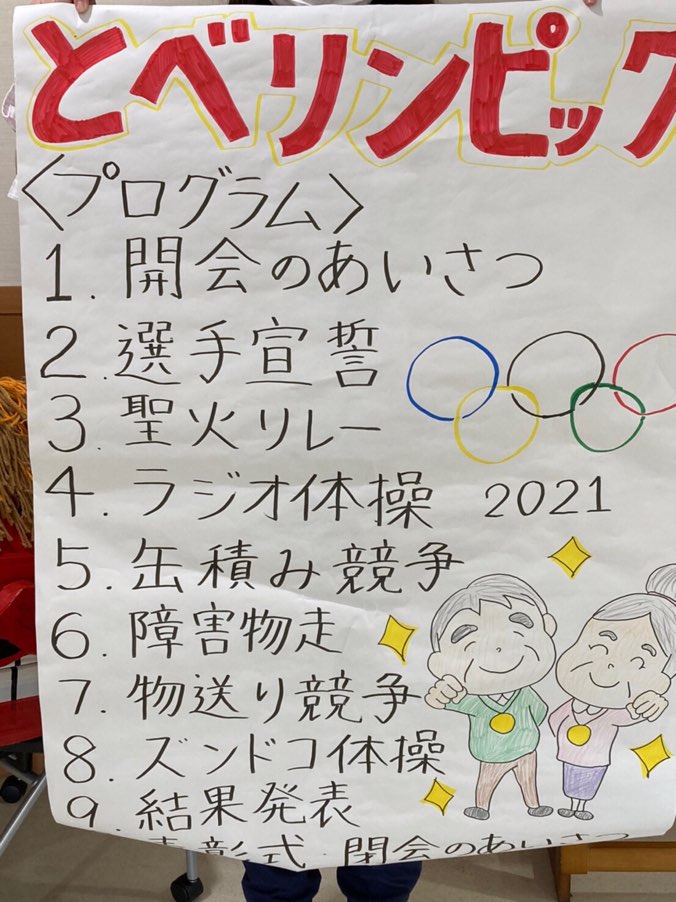 とべリンピック
〈プログラム〉
1. 開会のあいさつ
2. 選手宣誓
3. 聖火リレー
4. ラジオ体操 2021
5. 缶積み競争
6. 障害物走
7. 物送り競争
8. ズンドコ体操
9. 結果発表
表彰式 閉会のあいさつ